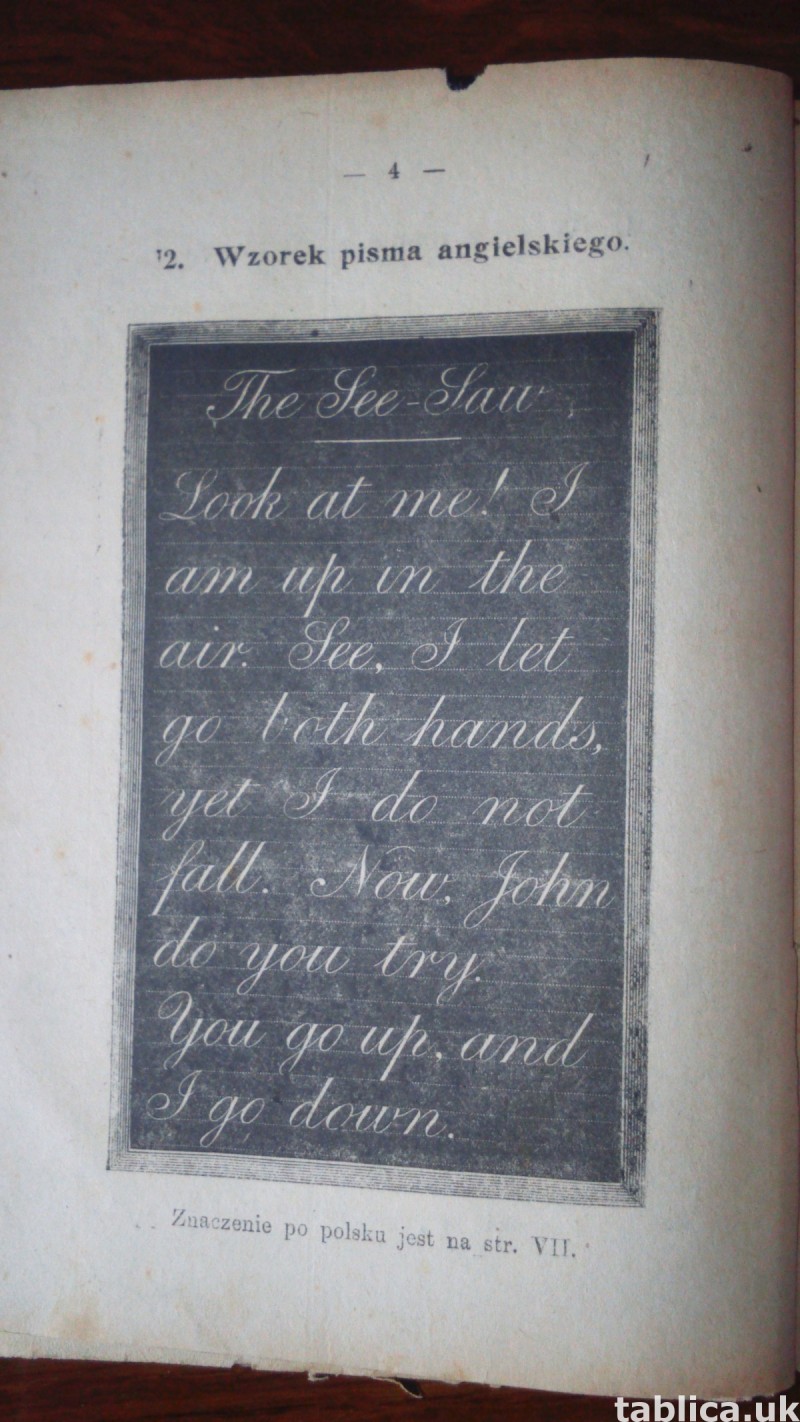 — 4 —
12. Wzorek pisma angielskiego.
The See-Saw
Look at me! I
am up in the
air. See, I let
go both hands,
yet I do not
fall. Now, John
do you try.
You go up, and
I go down.
Znaczenie po polsku jest na str. VII.
tablica.uk